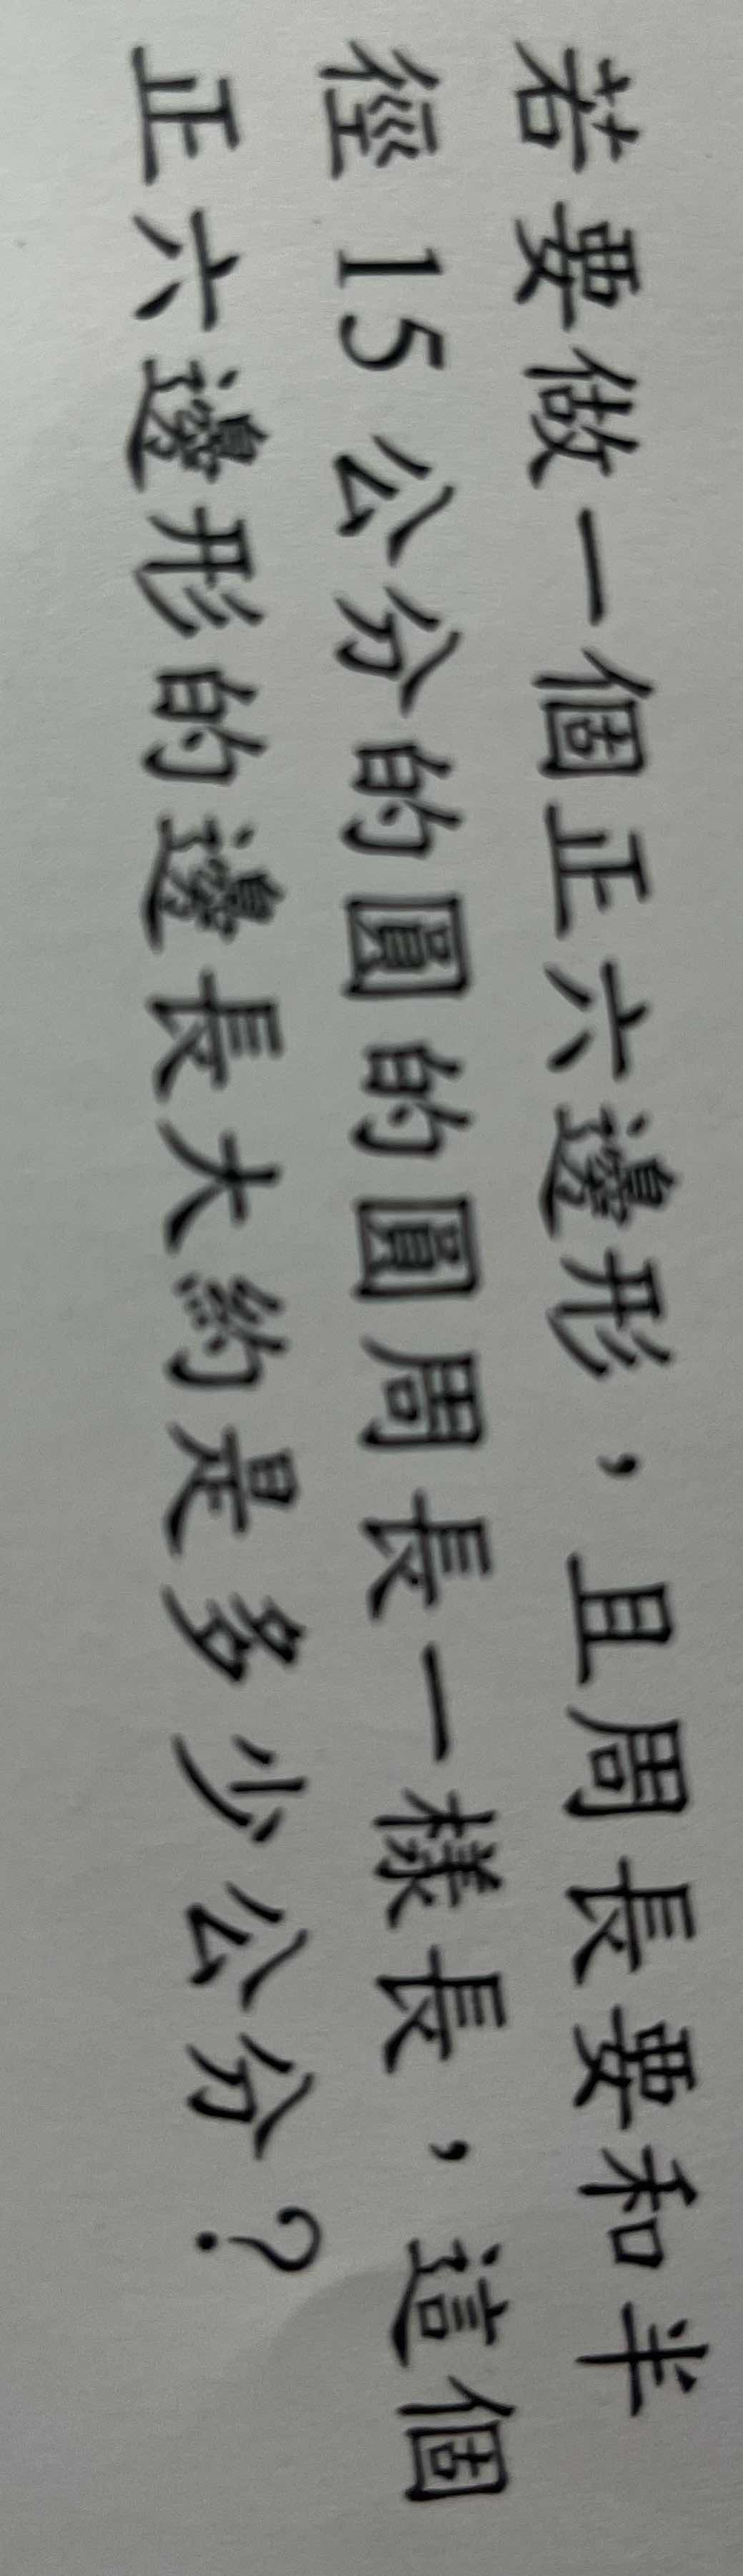 若要做一個正六邊形，且周長要和半
徑 15 公分的圓的圓周長一樣長，這個
正六邊形的邊長大約是多少公分？